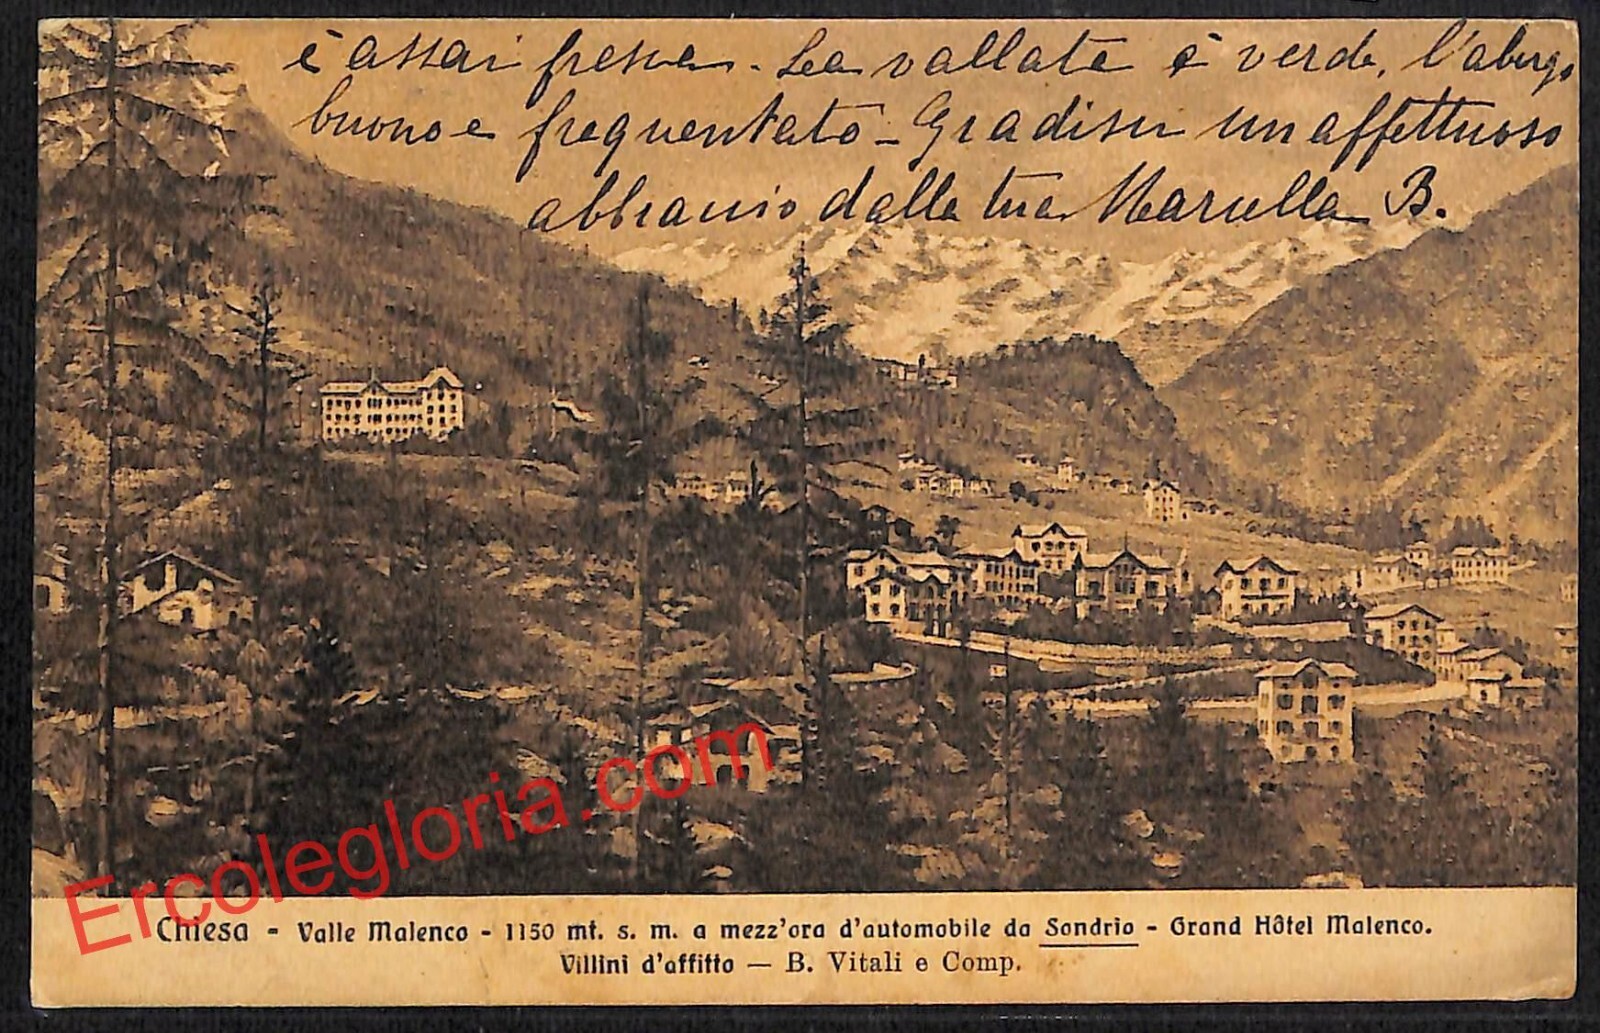 è assai fresca. La vallata è verde, l'abergo
buono e frequentato - Gradisci un affettuoso
abbraccio dalla tua Marcella B.
Ercolegloria.com
Chiesa - Valle Malenco - 1150 mt. s. m. a mezz'ora d'automobile da Sondrio - Grand Hôtel Malenco.
Villini d'affitto — B. Vitali e Comp.